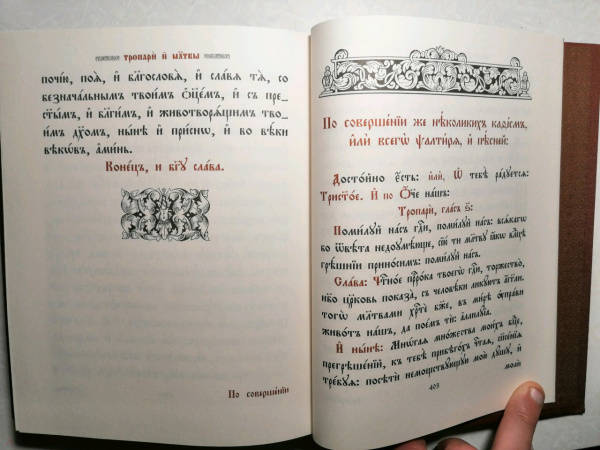 тропари̑ и҆ мл҃твы
почі́ю, поѧ̀, и҆ бл҃гословѧ̀, и҆ сла́вѧ тѧ̀, со
безнача́льнымъ твои́мъ ѻ҆ц҃е́мъ, и҆ съ пре-
ст҃ы́мъ, и҆ бл҃ги́мъ, и҆ животворѧ́щимъ тво-
и́мъ дх҃омъ, ны́нѣ и҆ при́снѡ, и҆ во вѣ́ки
вѣкѡ́въ, а҆ми́нь.
Коне́цъ, и҆ бг҃у сла́ва.
По соверше́нїи
По соверше́нїи же нѣ́коликихъ каѳі́смъ,
и҆лѝ всегѡ̀ ѱалти́рѧ, и҆ пѣ́сней:
Досто́йно є҆́сть: и҆лѝ, Ѡ҆ тебѣ̀ ра́дуетсѧ:
Трист҃о́е. И҆ по О҆́ч҃е на́шъ:
Тропарѝ, гла́съ ѕ҃:
Поми́луй на́съ гдⷭ҇и, поми́луй на́съ: всѧ́кагѡ
бо ѿвѣ́та недоꙋмѣ́юще, сїю̀ ти̑ мл҃твꙋ ꙗ҆́кѡ влⷣцѣ
грѣ́шнїи прино́симъ: поми́луй на́съ.
Сла́ва: Чⷭ҇тно́е прⷪ҇ро́ка твоегѡ̀ гдⷭ҇и, торжество̀,
нб҃о цр҃ковь показа̀, съ человѣ̑ки ликꙋ́ютъ а҆́гг҃ли.
тогѡ̀ мл҃твами хрⷭ҇тѐ бж҃е, въ ми́рѣ ѡ҆пра́ви
живо́тъ на́шъ, да пое́мъ тѝ: а҆ллилꙋ́їа.
И҆ ны́нѣ: Мнѡ́гаѧ мнѡ́жества мои́хъ бц҃е,
прегрѣше́нїй, къ тебѣ̀ прибѣго́хъ чⷭ҇таѧ, сп҃се́нїѧ
тре́бꙋѧ: посѣтѝ немощствꙋ́ющꙋю мою̀ дꙋ́шꙋ, и҆
моли̑
403